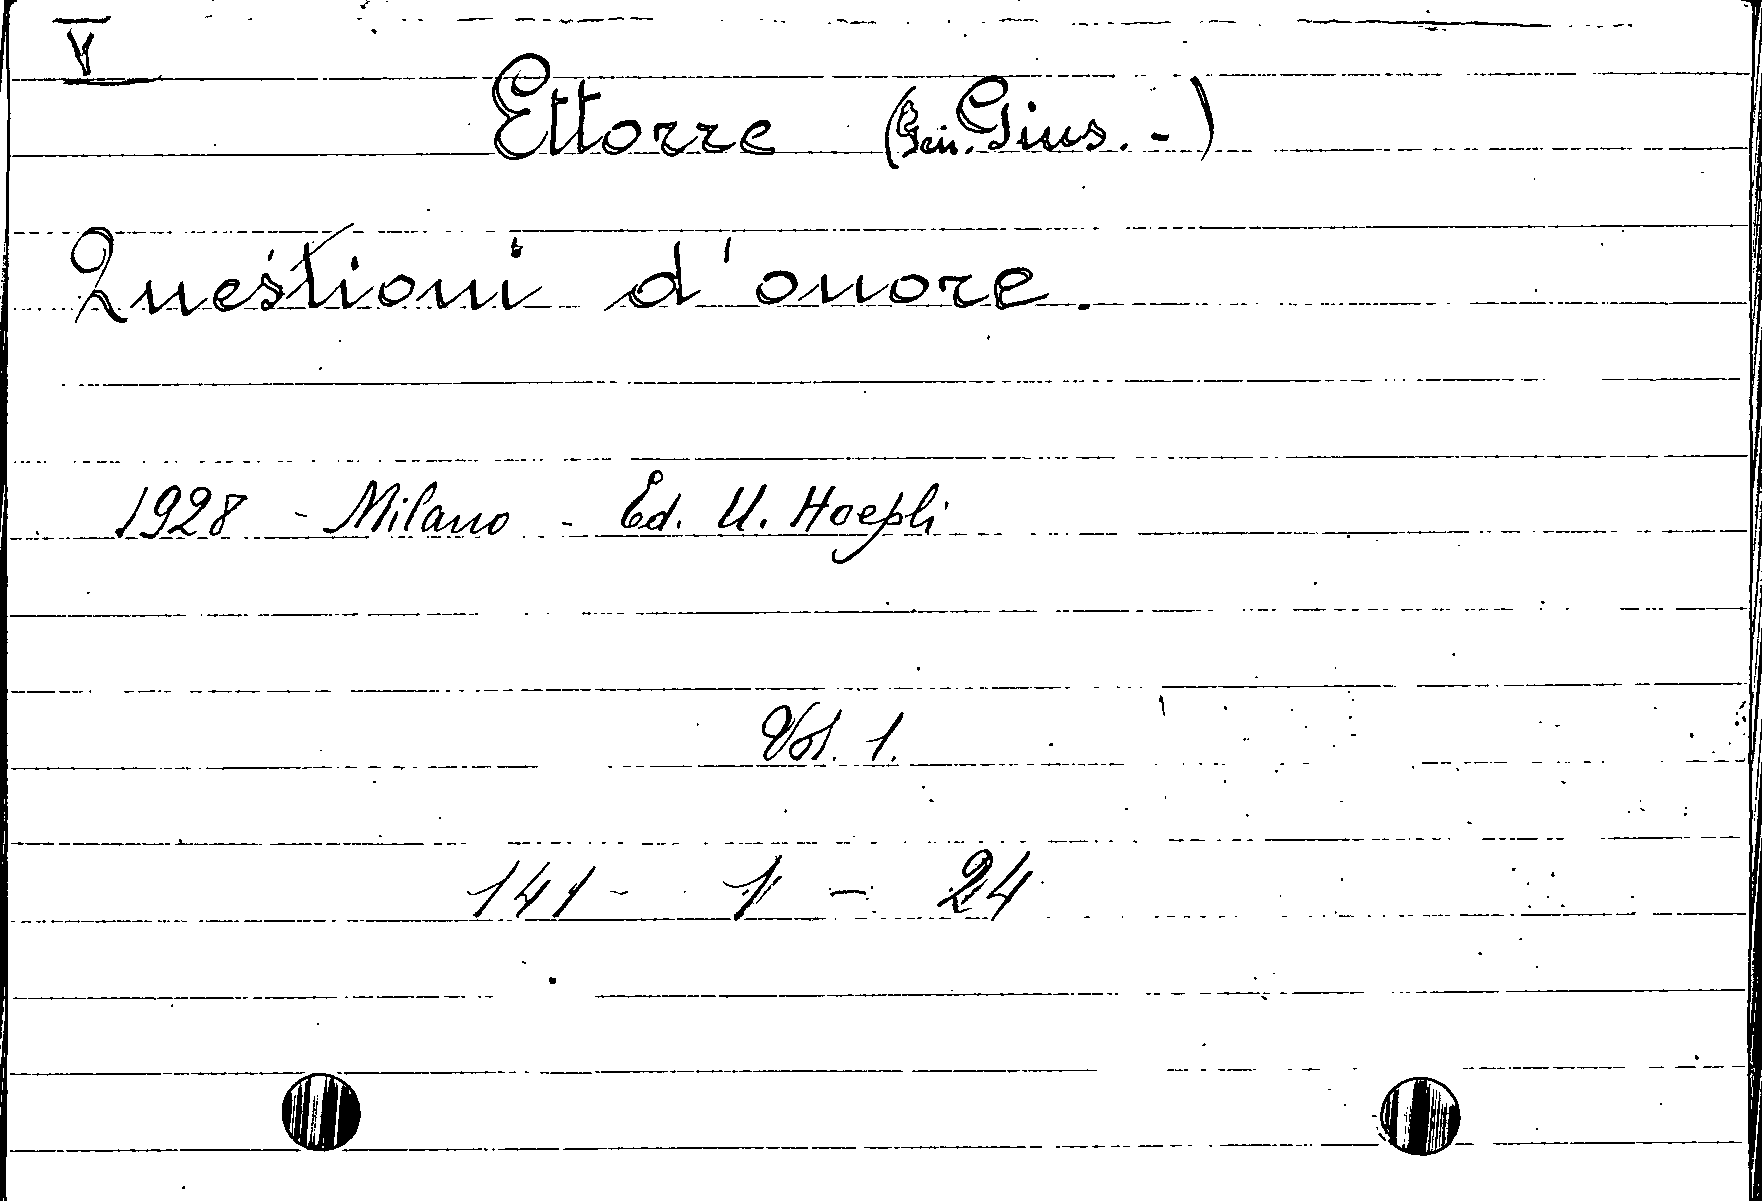 V
Ettorre (Gen. Gius. -)
Questioni d'onore.
1928 - Milano - Ed. U. Hoepli
Vol. 1.
141 - 1 - 24